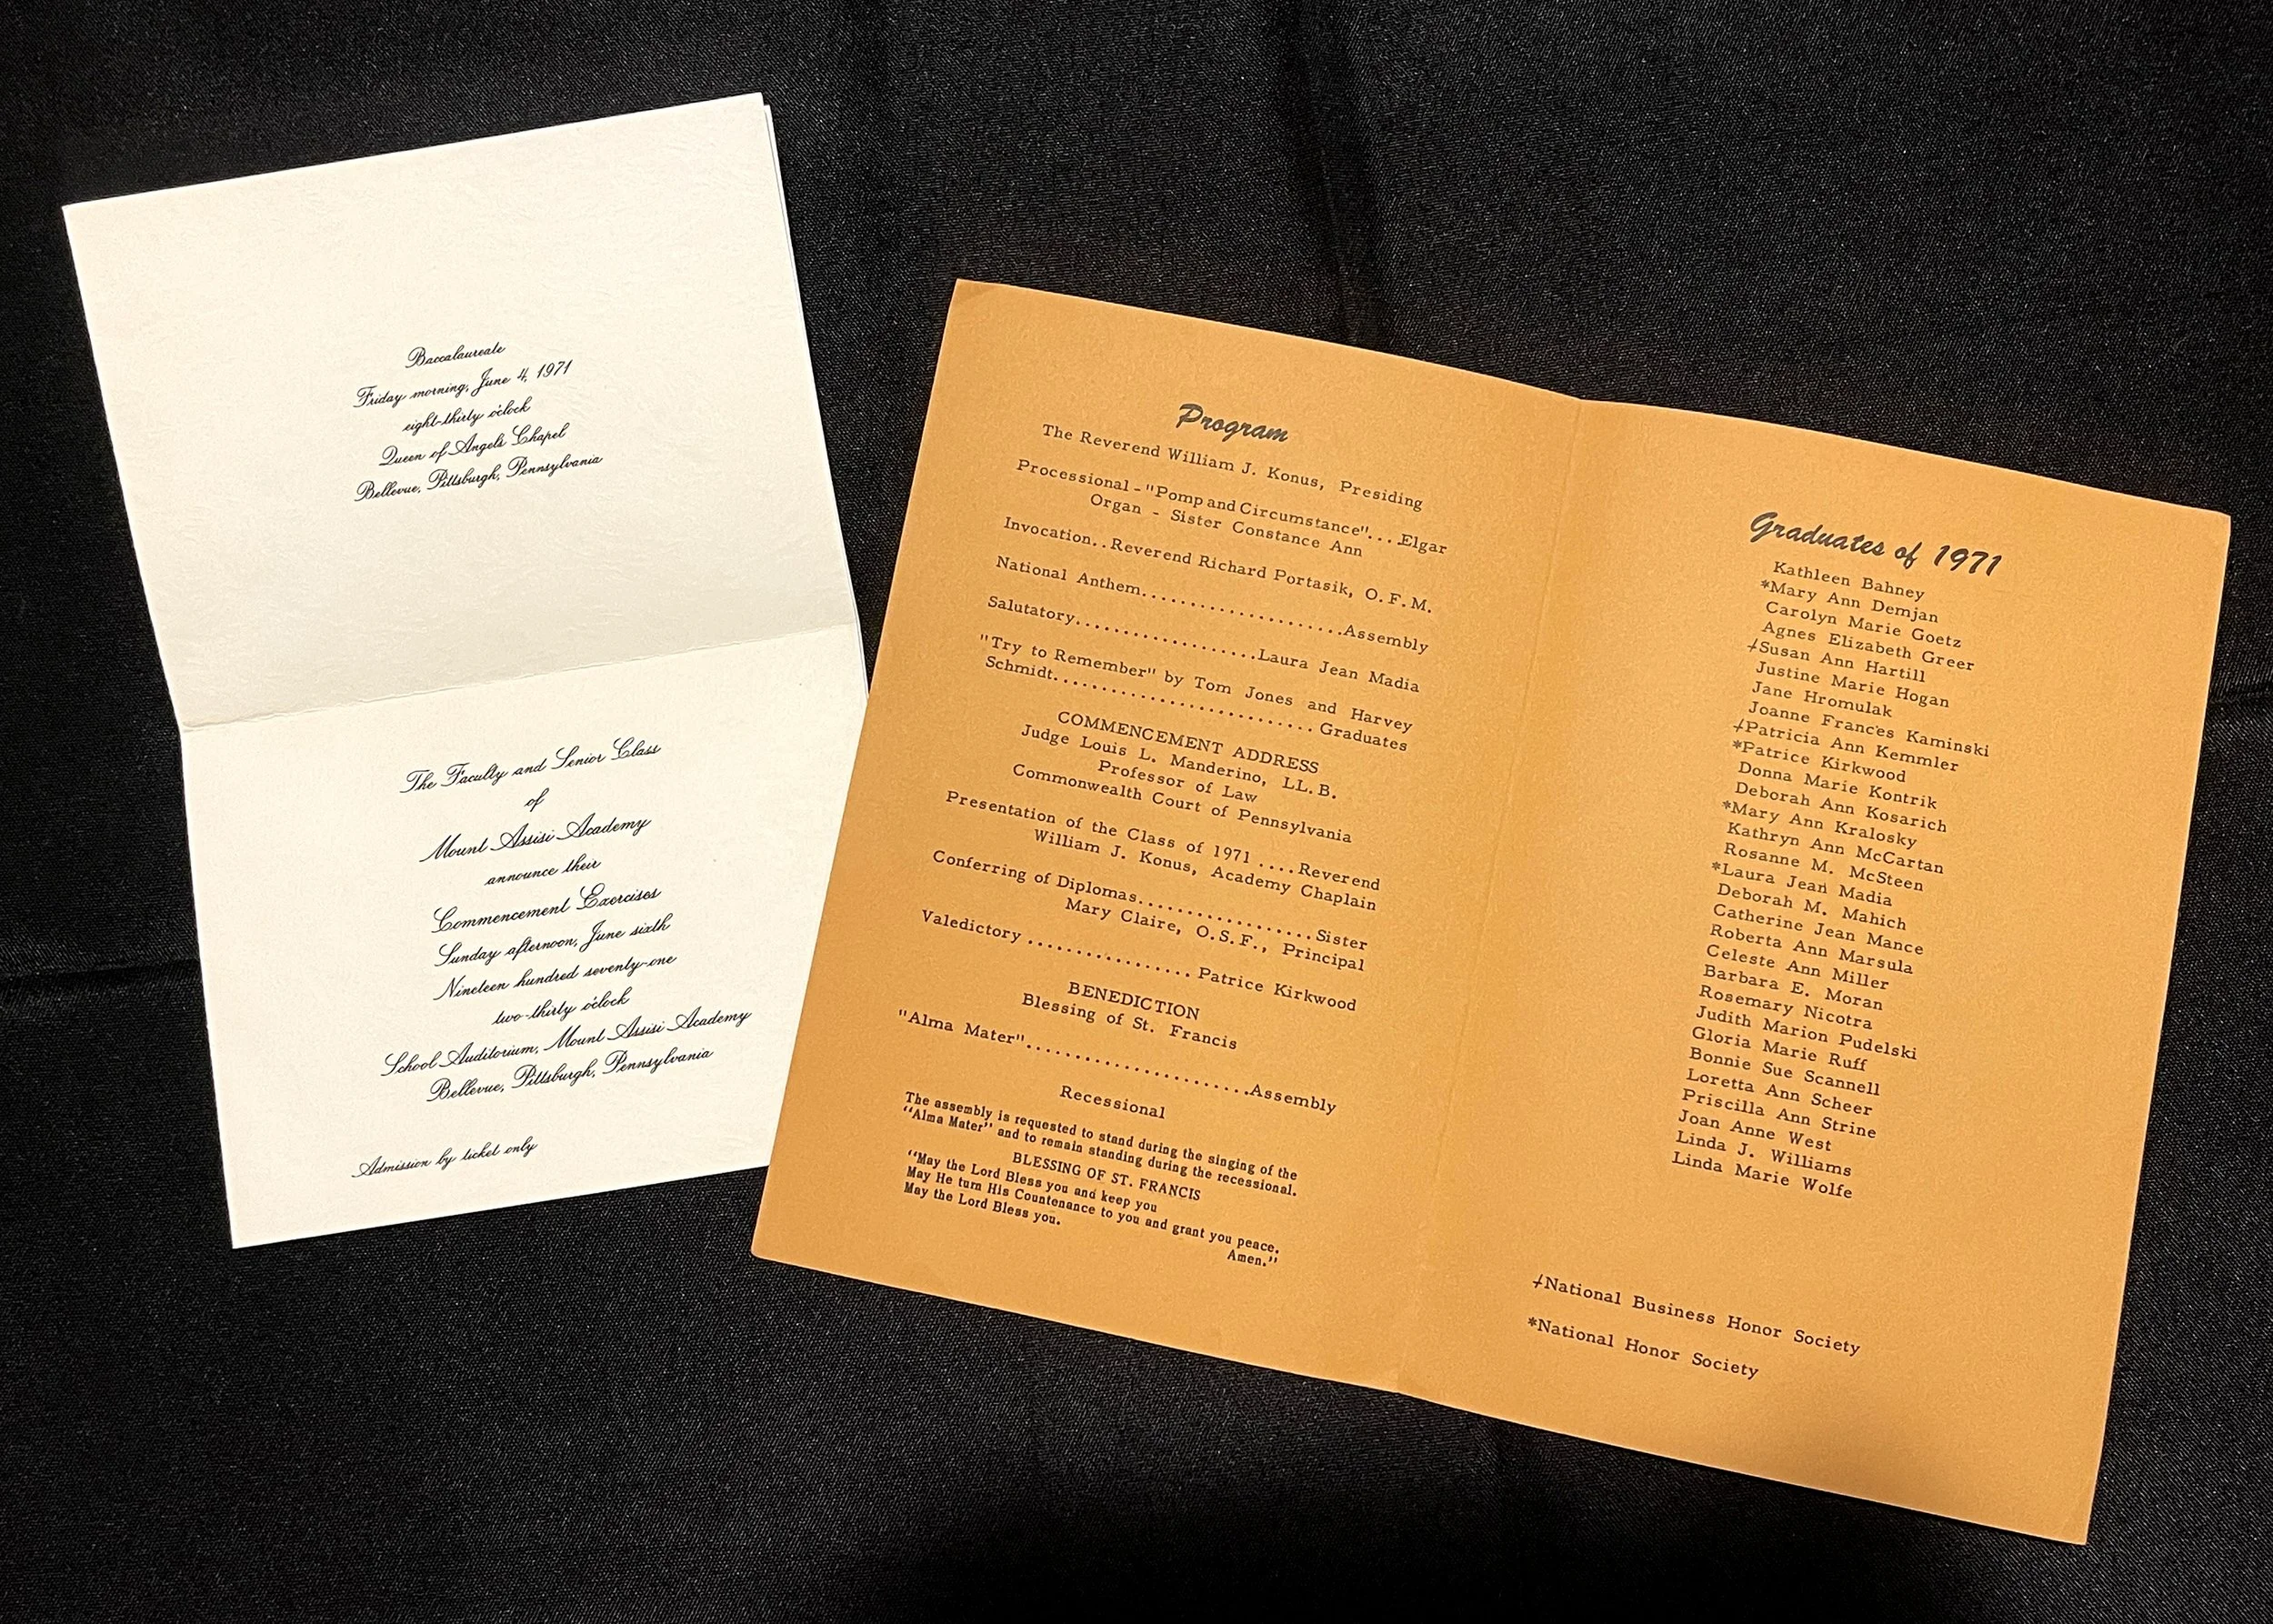 Baccalaureate
Friday morning, June 4, 1971
eight-thirty o'clock
Queen of Angels Chapel
Bellevue, Pittsburgh, Pennsylvania
The Faculty and Senior Class
of
Mount Assisi Academy
announce their
Commencement Exercises
Sunday afternoon, June sixth
Nineteen hundred seventy-one
two-thirty o'clock
School Auditorium, Mount Assisi Academy
Bellevue, Pittsburgh, Pennsylvania
Admission by ticket only
Program
The Reverend William J. Konus, Presiding
Processional - "Pomp and Circumstance"....Elgar
Organ - Sister Constance Ann
Invocation..Reverend Richard Portasik, O.F.M.
National Anthem......................Assembly
Salutatory....................Laura Jean Madia
"Try to Remember" by Tom Jones and Harvey
Schmidt............................Graduates
COMMENCEMENT ADDRESS
Judge Louis L. Manderino, LL.B.
Professor of Law
Commonwealth Court of Pennsylvania
Presentation of the Class of 1971 ....Reverend
William J. Konus, Academy Chaplain
Conferring of Diplomas...................Sister
Mary Claire, O.S.F., Principal
Valedictory ................. Patrice Kirkwood
BENEDICTION
Blessing of St. Francis
"Alma Mater"........................Assembly
Recessional
The assembly is requested to stand during the singing of the
"Alma Mater" and to remain standing during the recessional.
BLESSING OF ST. FRANCIS
"May the Lord Bless you and keep you
May He turn His Countenance to you and grant you peace.
May the Lord Bless you.
Amen."
Graduates of 1971
Kathleen Bahney
*Mary Ann Demjan
Carolyn Marie Goetz
Agnes Elizabeth Greer
⌿Susan Ann Hartill
Justine Marie Hogan
Jane Hromulak
Joanne Frances Kaminski
⌿Patricia Ann Kemmler
*Patrice Kirkwood
Donna Marie Kontrik
Deborah Ann Kosarich
*Mary Ann Kralosky
Kathryn Ann McCartan
Rosanne M. McSteen
*Laura Jean Madia
Deborah M. Mahich
Catherine Jean Mance
Roberta Ann Marsula
Celeste Ann Miller
Barbara E. Moran
Rosemary Nicotra
Judith Marion Pudelski
Gloria Marie Ruff
Bonnie Sue Scannell
Loretta Ann Scheer
Priscilla Ann Strine
Joan Anne West
Linda J. Williams
Linda Marie Wolfe
⌿National Business Honor Society
*National Honor Society